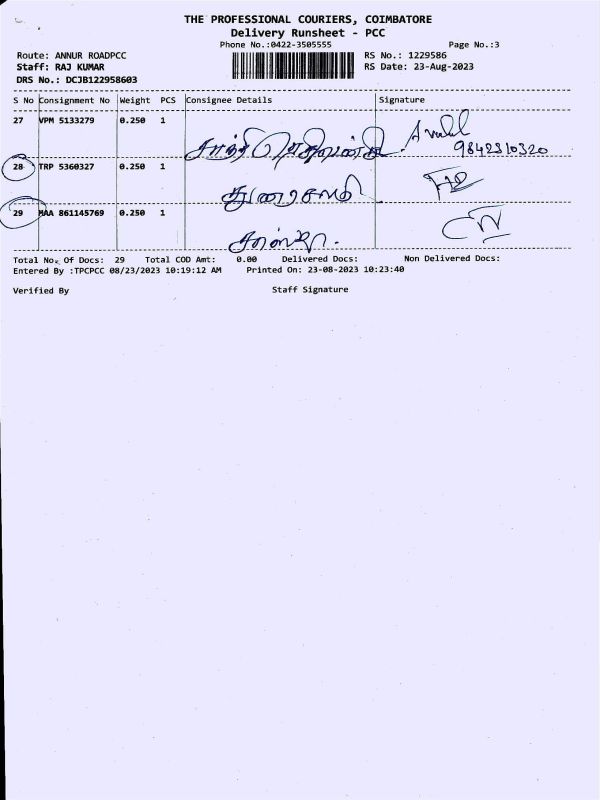 THE PROFESSIONAL COURIERS, COIMBATORE
Delivery Runsheet - PCC
Phone No.:0422-3505555 Page No.:3
Route: ANNUR ROADPCC RS No.: 1229586
Staff: RAJ KUMAR RS Date: 23-Aug-2023
DRS No.: DCJB122958603
S No Consignment No Weight PCS Consignee Details Signature
27 VPM 5133279 0.250 1
9842310320
28 TRP 5360327 0.250 1
துரைசாமி
29 MAA 861145769 0.250 1
Total No. Of Docs: 29 Total COD Amt: 0.00 Delivered Docs: Non Delivered Docs:
Entered By :TPCPCC 08/23/2023 10:19:12 AM Printed On: 23-08-2023 10:23:40
Verified By Staff Signature